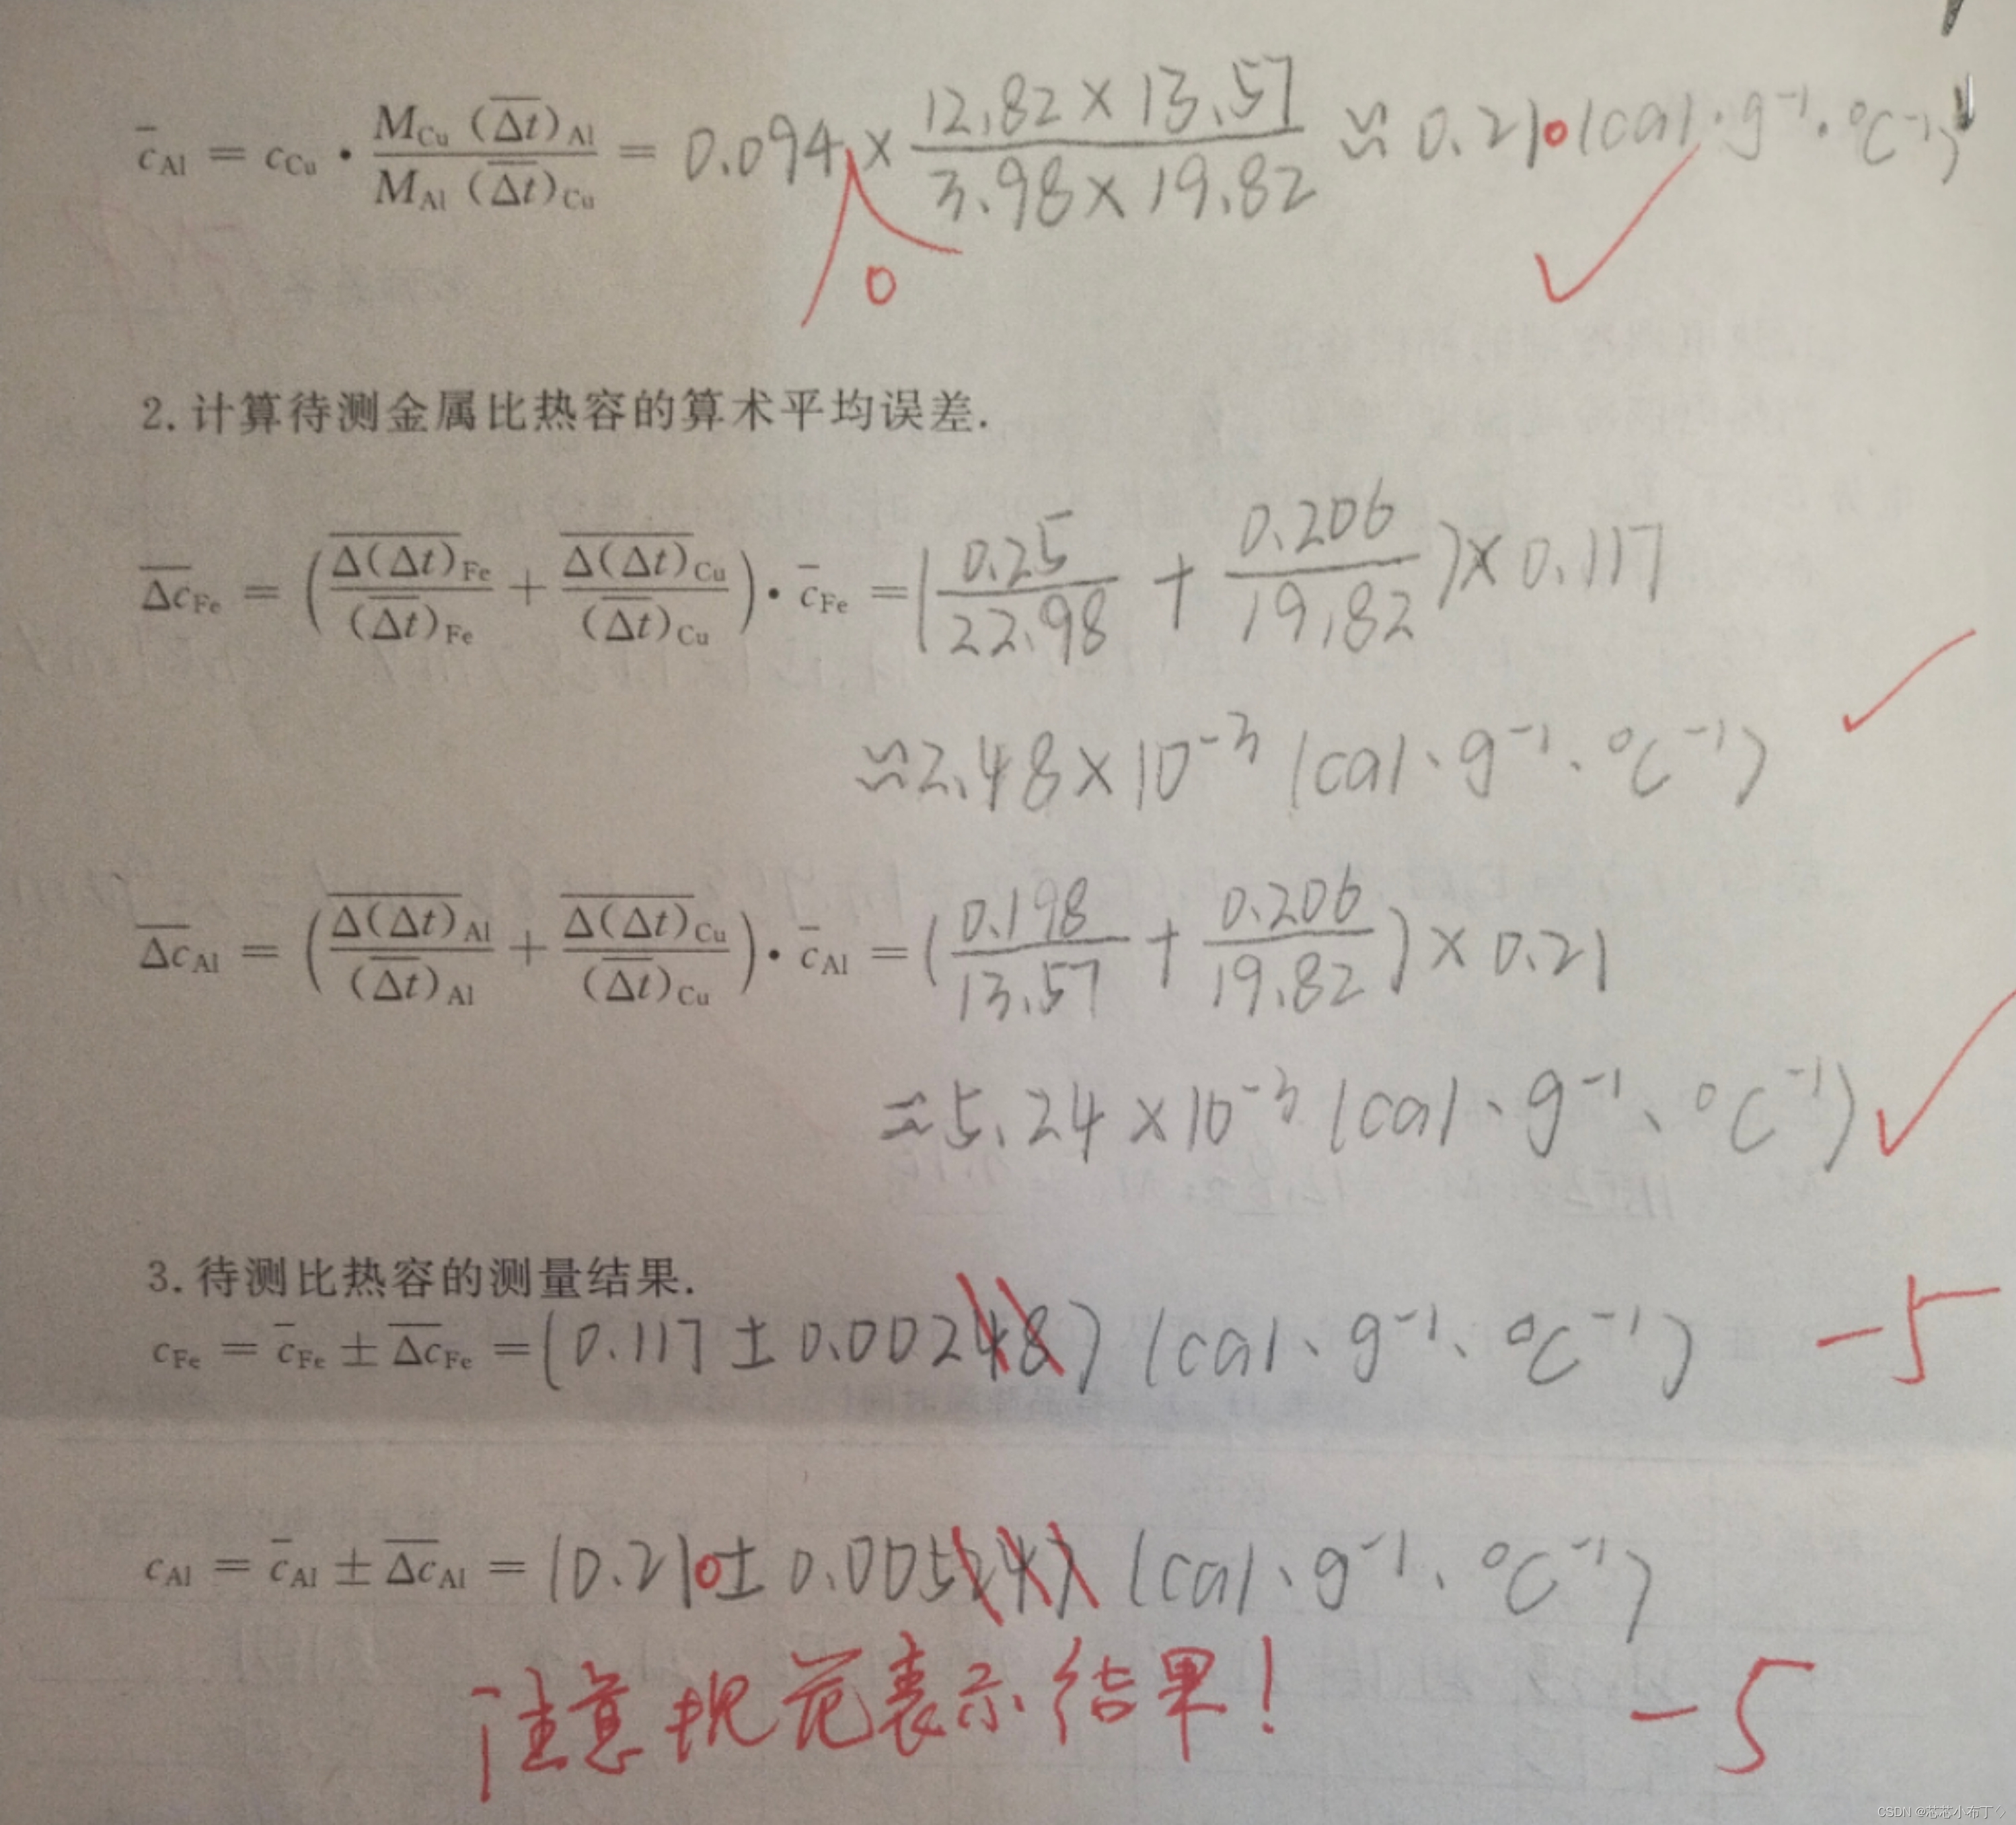 c̄Al = cCu · MCu (Δt)Al / MAl (Δt)Cu = 0.094 × 12.82 × 13.57 / 3.98 × 19.82 ≈ 0.210 (cal · g⁻¹ · °C⁻¹)
0
2. 计算待测金属比热容的算术平均误差.
ΔcFe = (Δ(Δt)Fe / (Δt)Fe + Δ(Δt)Cu / (Δt)Cu) · c̄Fe = (0.25 / 22.98 + 0.206 / 19.82) × 0.117
≈ 2.48 × 10⁻³ (cal · g⁻¹ · °C⁻¹)
ΔcAl = (Δ(Δt)Al / (Δt)Al + Δ(Δt)Cu / (Δt)Cu) · c̄Al = (0.198 / 13.57 + 0.206 / 19.82) × 0.21
≈ 5.24 × 10⁻³ (cal · g⁻¹ · °C⁻¹)
3. 待测比热容的测量结果.
cFe = c̄Fe ± ΔcFe = (0.117 ± 0.00248) (cal · g⁻¹ · °C⁻¹) -5
cAl = c̄Al ± ΔcAl = (0.210 ± 0.00524) (cal · g⁻¹ · °C⁻¹)
注意规范表示结果! -5
CSDN @芯芯小布丁◇